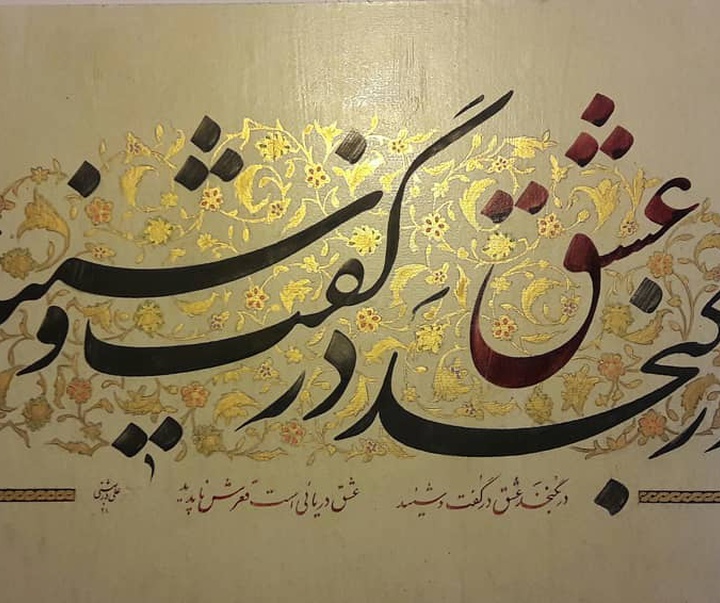 در نگنجد عشق در گفت و شنید
در نگنجد عشق در گفت و شنید عشق دریائی است قعرش ناپدید